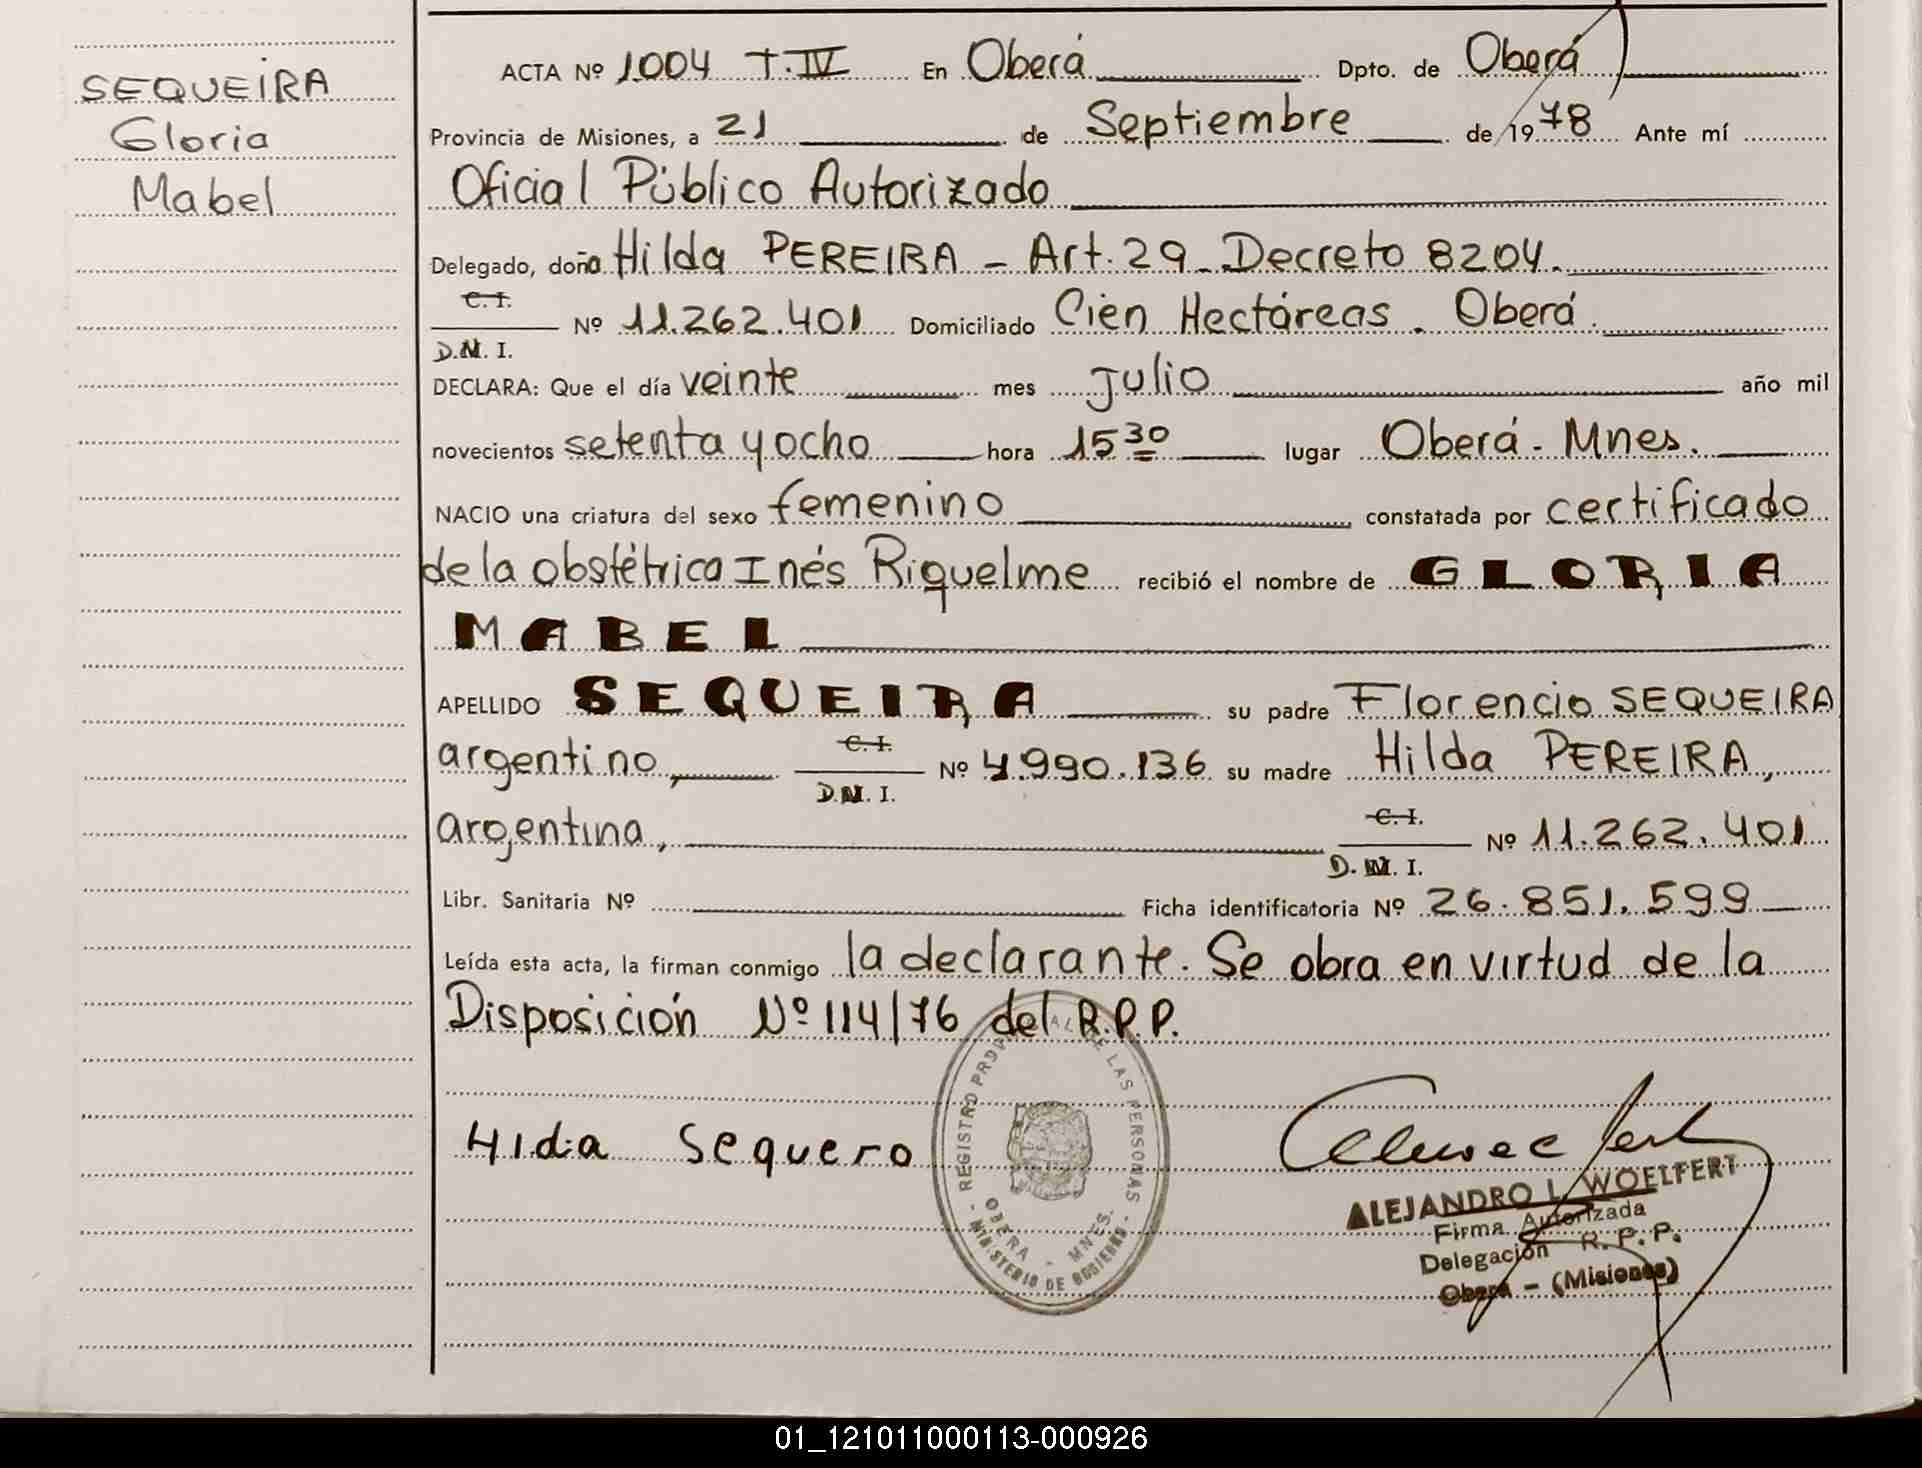 SEQUEIRA
Gloria
Mabel
ACTA Nº 1004 T.IV En Oberá Dpto. de Oberá
Provincia de Misiones, a 21 de Septiembre de 1978 Ante mí
Oficial Público Autorizado
Delegado, doña Hilda PEREIRA - Art. 29 - Decreto 8204.
C. I.
Nº 11.262.401 Domiciliado Cien Hectáreas. Oberá.
D.N. I.
DECLARA: Que el día veinte mes julio año mil
novecientos setenta y ocho hora 15 30 lugar Oberá - Mnes.
NACIO una criatura del sexo femenino constatada por certificado
de la obstétrica Inés Riquelme recibió el nombre de GLORIA
MABEL
APELLIDO SEQUEIRA su padre Florencio SEQUEIRA
C. I.
argentino, Nº 4.990.136 su madre Hilda PEREIRA,
D.N. I.
C. I.
argentina, Nº 11.262.401
D. N. I.
Libr. Sanitaria Nº Ficha identificatoria Nº 26.851.599
Leída esta acta, la firman conmigo la declarante. Se obra en virtud de la
Disposición Nº 114/76 del R.P.P.
REGISTRO PROVINCIAL DE LAS PERSONAS
OBERA - MNES.
- MINISTERIO DE GOBIERNO -
Hidia Sequero
ALEJANDRO L. WOELFERT
Firma Autorizada
Delegación R. P. P.
Oberá - (Misiones)
01_121011000113-000926